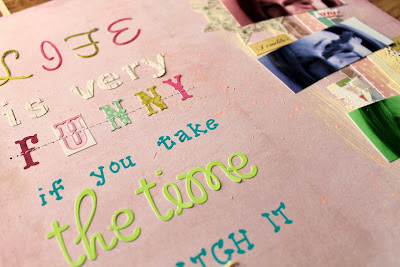 LIFE
is very
FUNNY
if you take
the time
IT